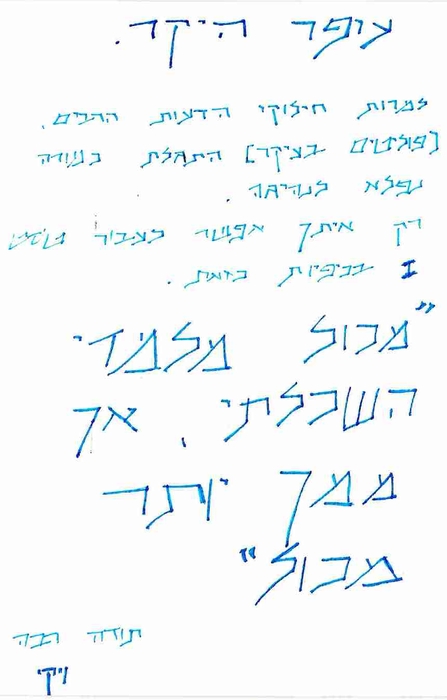 עופר היקר.
למרות חילוקי הדעות הרבים.
[פוליטים בעיקר] התגלת כמורה
נפלא לנהיגה.
רק איתך אפשר לעבור טסט
I בכיפיות כזאת.
"מכול מלמדי
השכלתי, אך
ממך יותר
מכול"
תודה רבה
ויקי